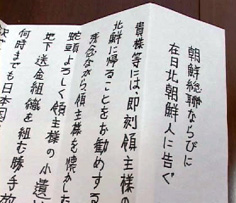 朝鮮総聯ならびに
在日北朝鮮人に告ぐ
貴様等には、即刻領主様の
北鮮に帰ることをお勧めする
残念ながら、領主様を懐かしむ
蛇頭よろしく領主様の小遣い
地下送金組織を組む勝手放
何時までも日本国